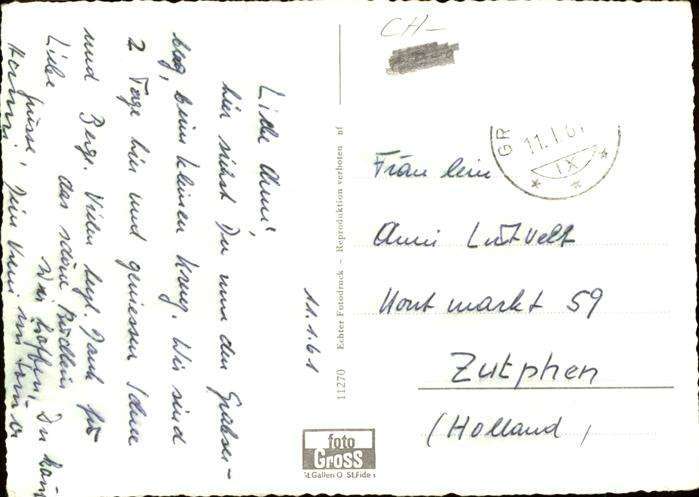 11.1.61
Liebe Anni,
hier siehst Du nun den Grabser-
berg, beim kleinen Krug. Wir sind
2 Tage hier und geniessen Schnee
und Berge. Vielen herzl. Dank für
Liebe das schöne Büchlein
Grüsse, Wir hoffen, Du kommst
Dein
CH-
GR
11.1.61
IX
Fräulein
Anni Lutvelt
Hout markt 59
Zutphen
(Holland)
11270 Echter Fotodruck – Reproduktion verboten nf
foto
Gross
St.Gallen O St.Fiden